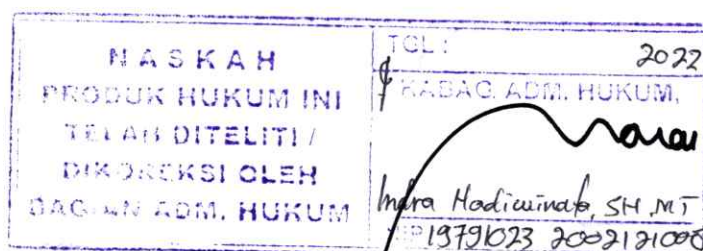 NASKAH
PRODUK HUKUM INI
TELAH DITELITI /
DIKOREKSI OLEH
BAGIAN ADM. HUKUM
TGL : 2022
KABAG. ADM. HUKUM,
Indra Hadiwinata, SH, MT
NIP 19791023